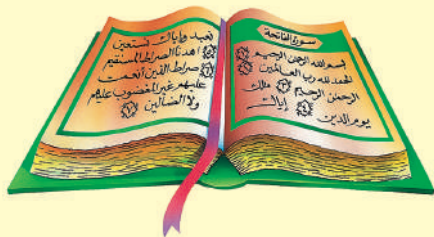 سورة الفاتحة
بسم الله الرحمن الرحيم ١
الحمد لله رب العالمين ٢
الرحمن الرحيم ٣ مالك
يوم الدين ٤ إياك
نعبد وإياك نستعين
٥ اهدنا الصراط المستقيم
٦ صراط الذين أنعمت
عليهم غير المغضوب عليهم
ولا الضالين ٧